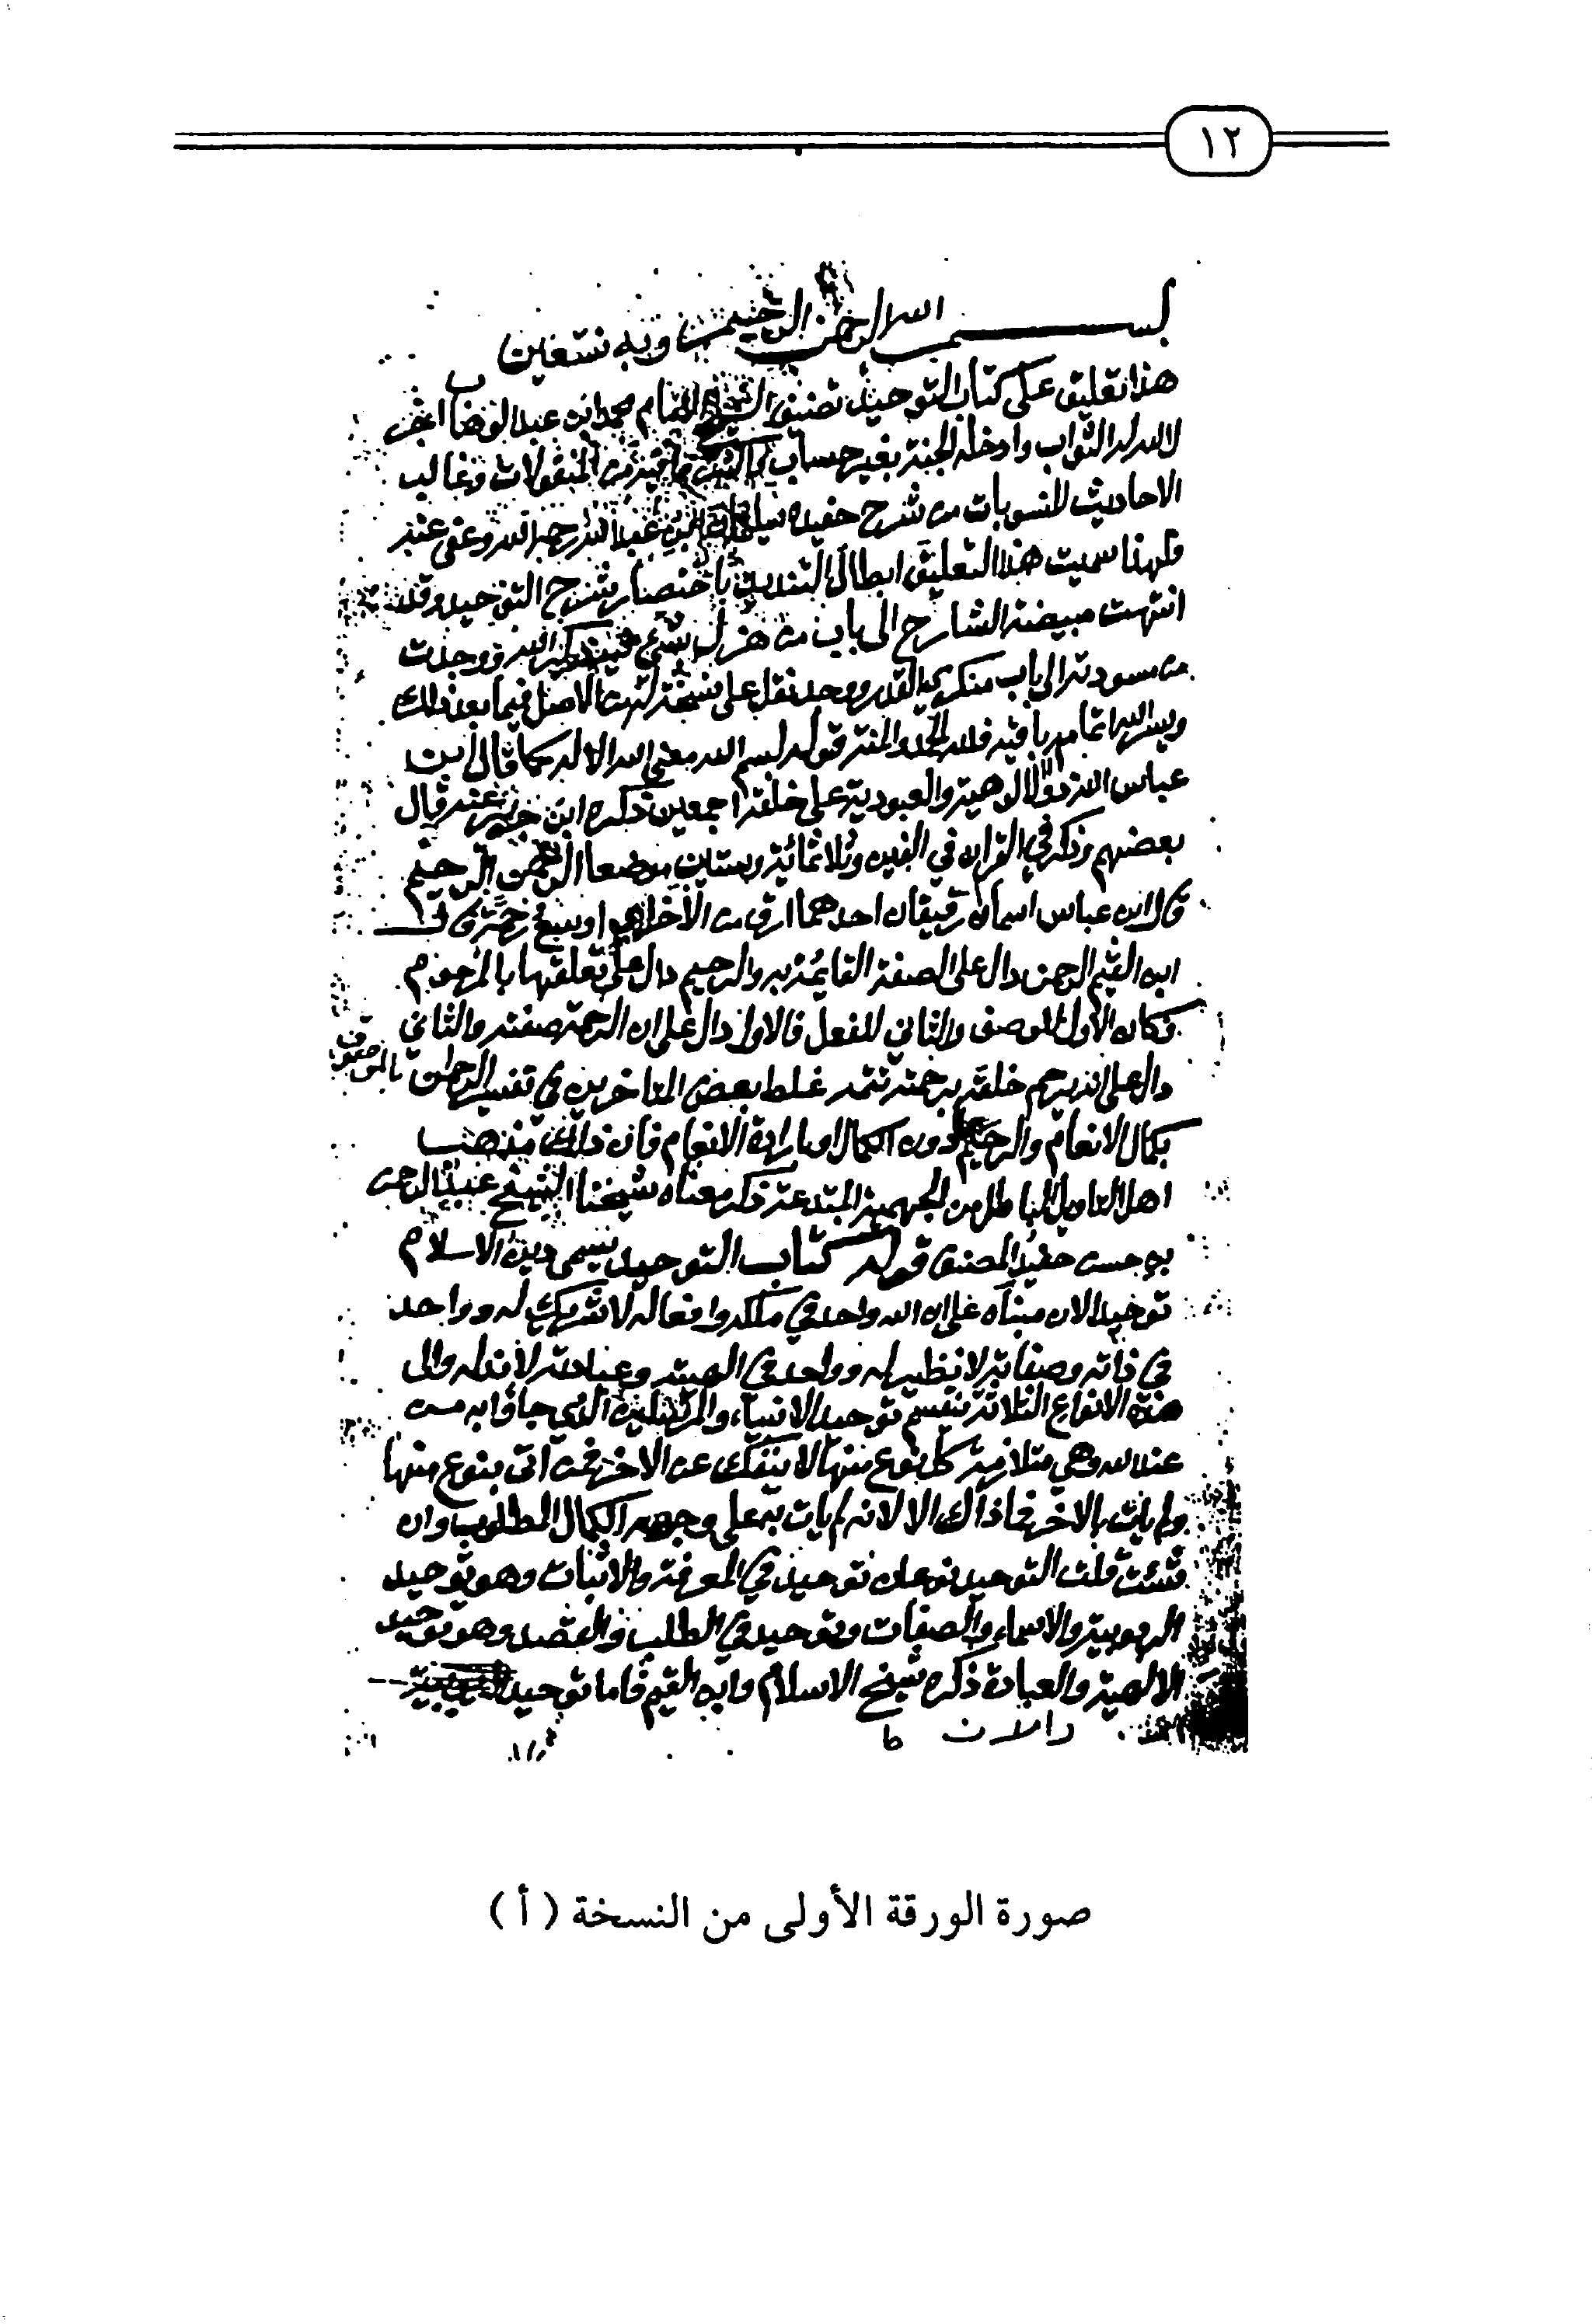 ١٢
بسم الله الرحمن الرحيم وبه نستعين
هذا تعليق على كتاب التوحيد تصنيف الشيخ الامام محمد ابن عبد الوهاب اجزل
الله له الثواب وادخله الجنة بغير حساب المنقولات وغالب
الاحاديث المنسوبات من شرح حفيده سليمان بن عبد الله رحمه الله وعفى عنه
فلهذا سميت هذا التعليق ابطال التنديد باختصار شرح التوحيد وقد
انتهت مبيضة الشارح الى باب من هزل بشي فيه ذكر الله ووجدت
من مسودته الى باب منكري القدر الاصل فيما بعد ذلك
ويسر الله اتمام باقيه فلله الحمد والمنة قوله بسم الله معنى الله الاله كما قال ابن
عباس الله ذو الالوهية والعبودية على خلقه اجمعين ذكره ابن جرير عنه قال
بعضهم وذكر في القران في الفين وثلاثمائة وستين موضعا الرحمن الرحيم
قال ابن عباس اسمان رقيقان احدهما ارق من الاخر اي اوسع رحمة قال
ابن القيم الرحمن دال على الصفة القائمة به والرحيم دال على تعلقها بالمرحوم
فكان الاول للوصف والثاني للفعل فالاول دال على ان الرحمة صفته والثاني
دال على انه يرحم خلقه برحمته غلط بعض المتاخرين في تفسير الرحمن
بكمال الانعام والرحيم دون الكمال او بارادة الانعام فان ذلك مذهب
اهل التاويل الباطل من الجهمية المبتدعة ذكر معناه شيخنا الشيخ عبد الرحمن
بن حسن حفيد المصنف قوله كتاب التوحيد يسمى دين الاسلام
توحيدا لان مبناه على ان الله واحد في ملكه وافعاله لا شريك له وواحد
في ذاته وصفاته لا نظير له وواحد في الهيته وعبادته لا ند له والى
هذه الانواع الثلاثة ينقسم توحيد الانبياء والمرسلين الذي جاؤا به من
عند الله وهي متلازمة كل نوع منها لا ينفك عن الاخر فمن اتى بنوع منها
ولم يات بالاخر فما ذاك الا لانه لم يات به على وجه الكمال المطلوب وان
شئت قلت التوحيد نوعان توحيد في المعرفة والاثبات وهو توحيد
الربوبية والاسماء والصفات وتوحيد في الطلب والقصد وهو توحيد
الالهية والعبادة ذكره شيخ الاسلام وابن القيم فاما توحيد
صورة الورقة الأولى من النسخة ( أ )